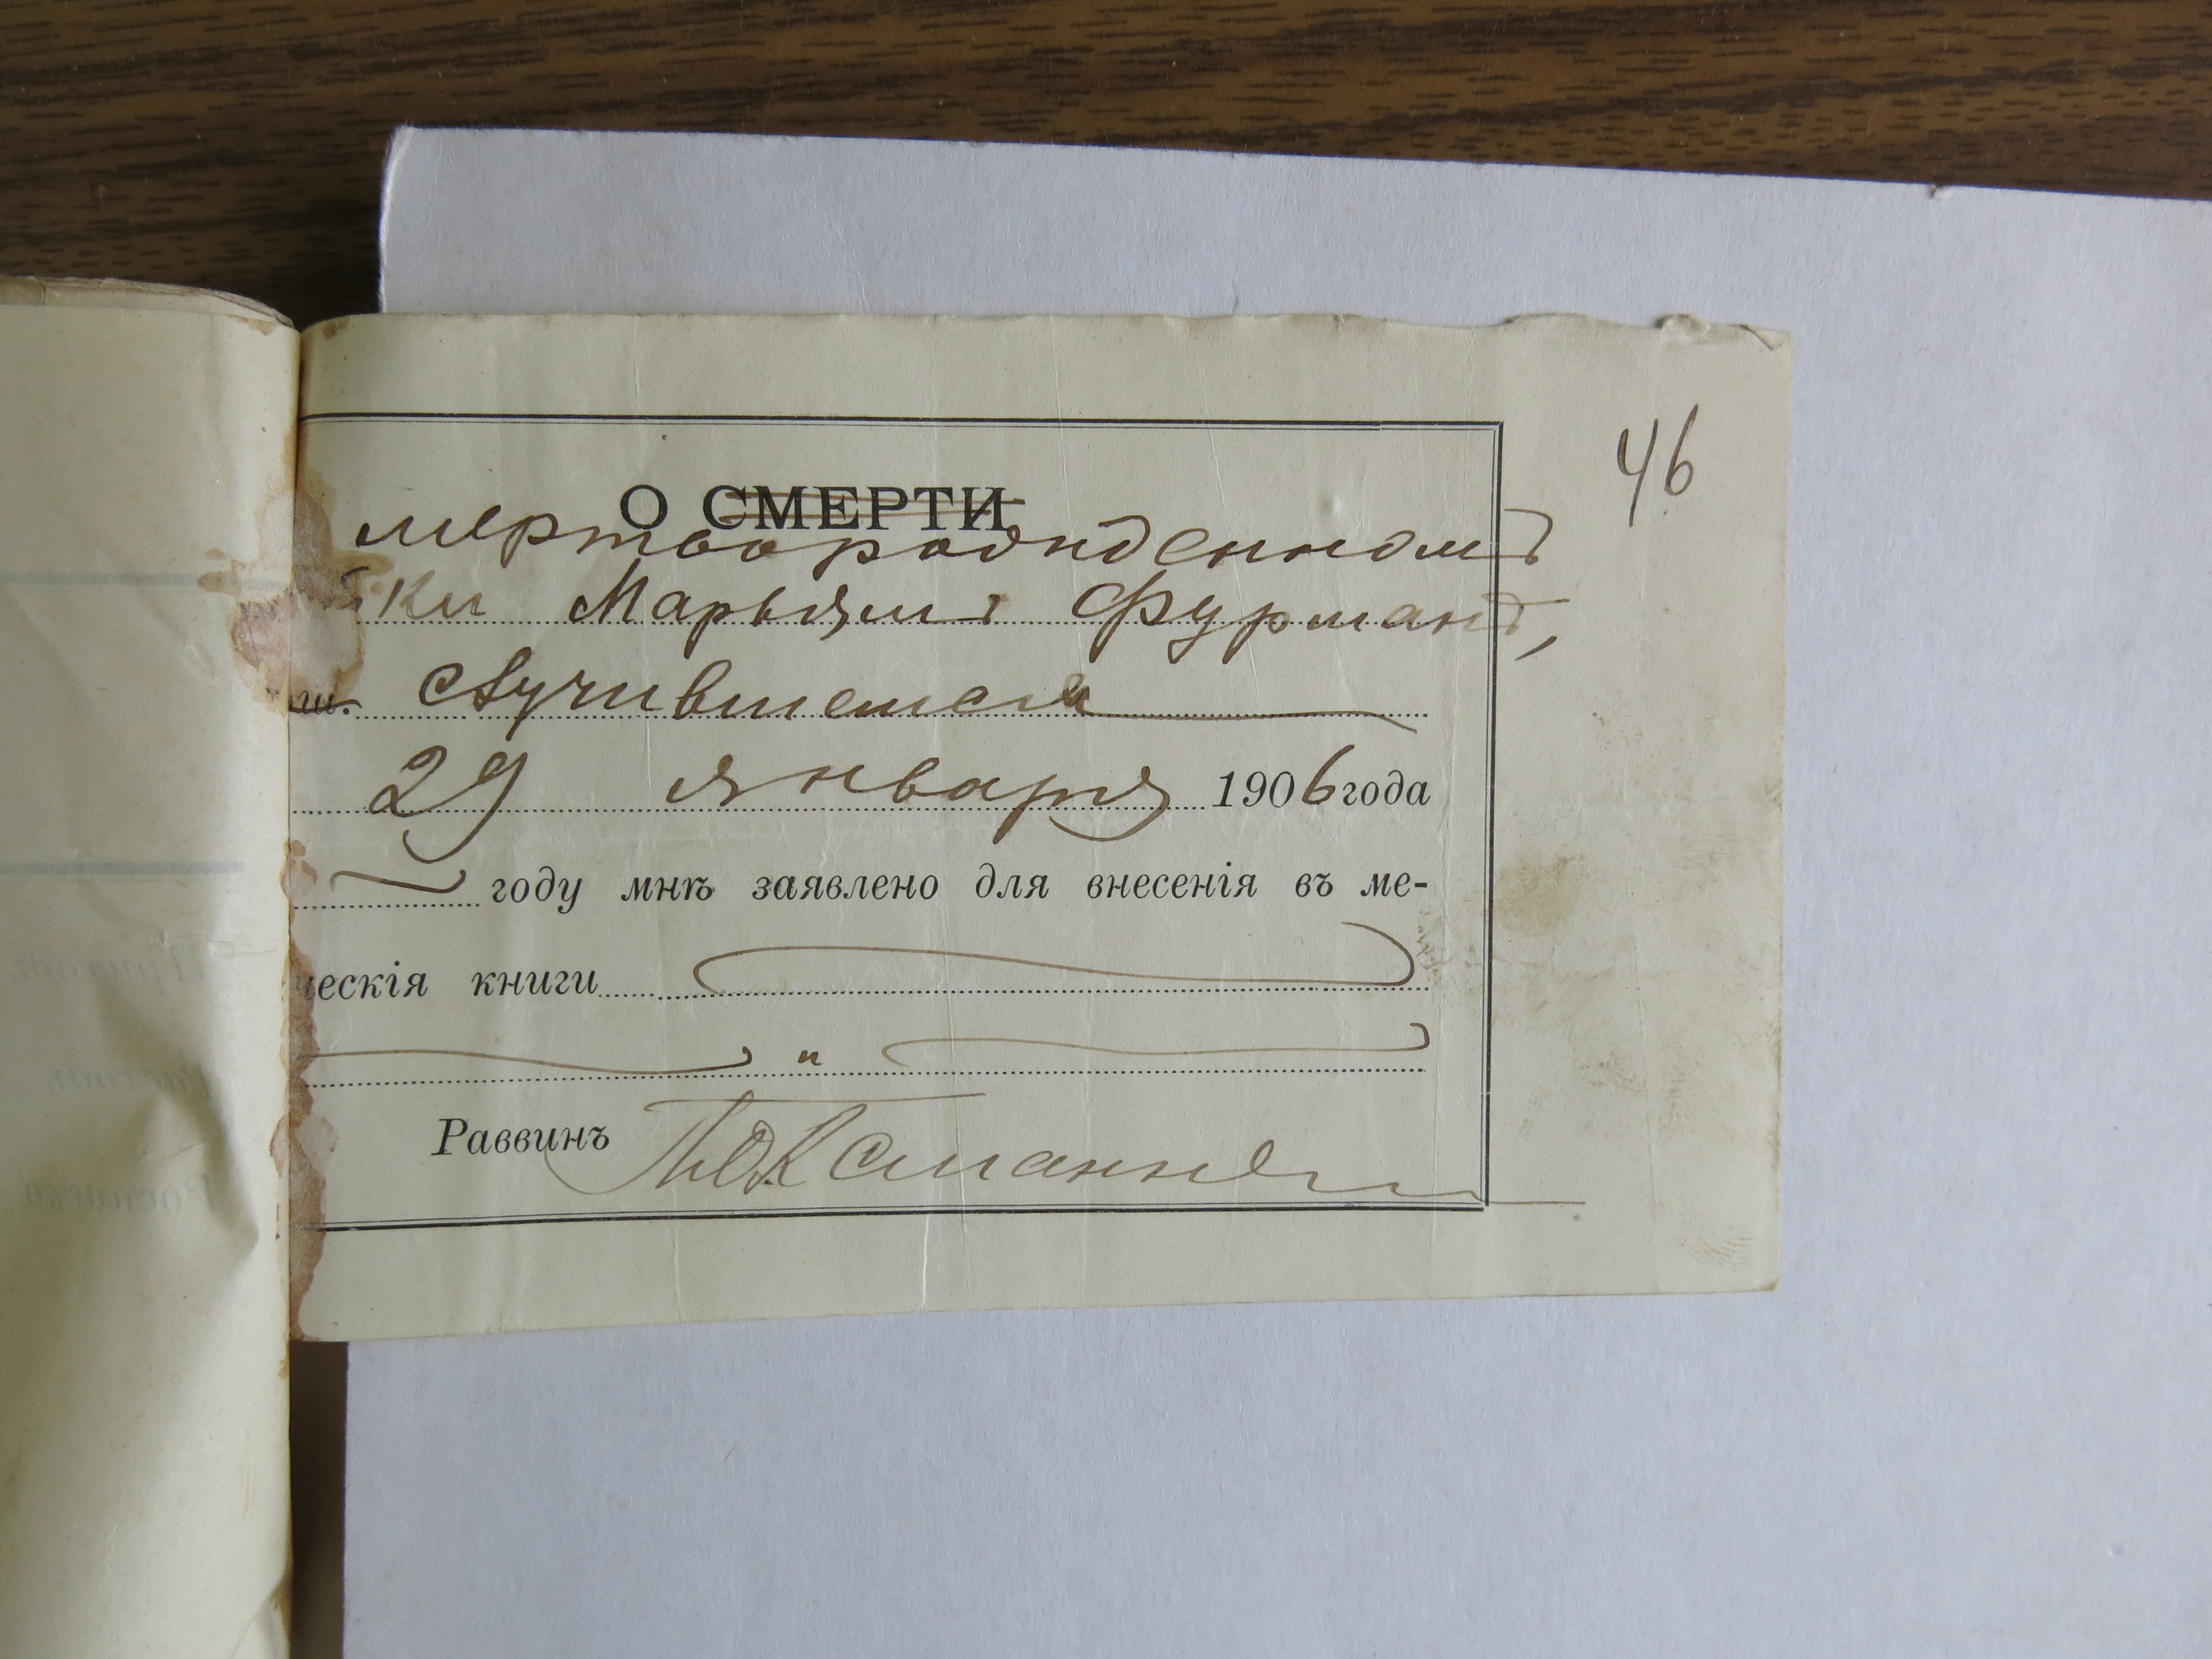 46
О СМЕРТИ
мертворожденномъ
ки Марьямъ Фурманъ,
ш. случившемся
29 января 1906 года
году мнѣ заявлено для внесенія въ ме-
ческія книги
"
Раввинъ